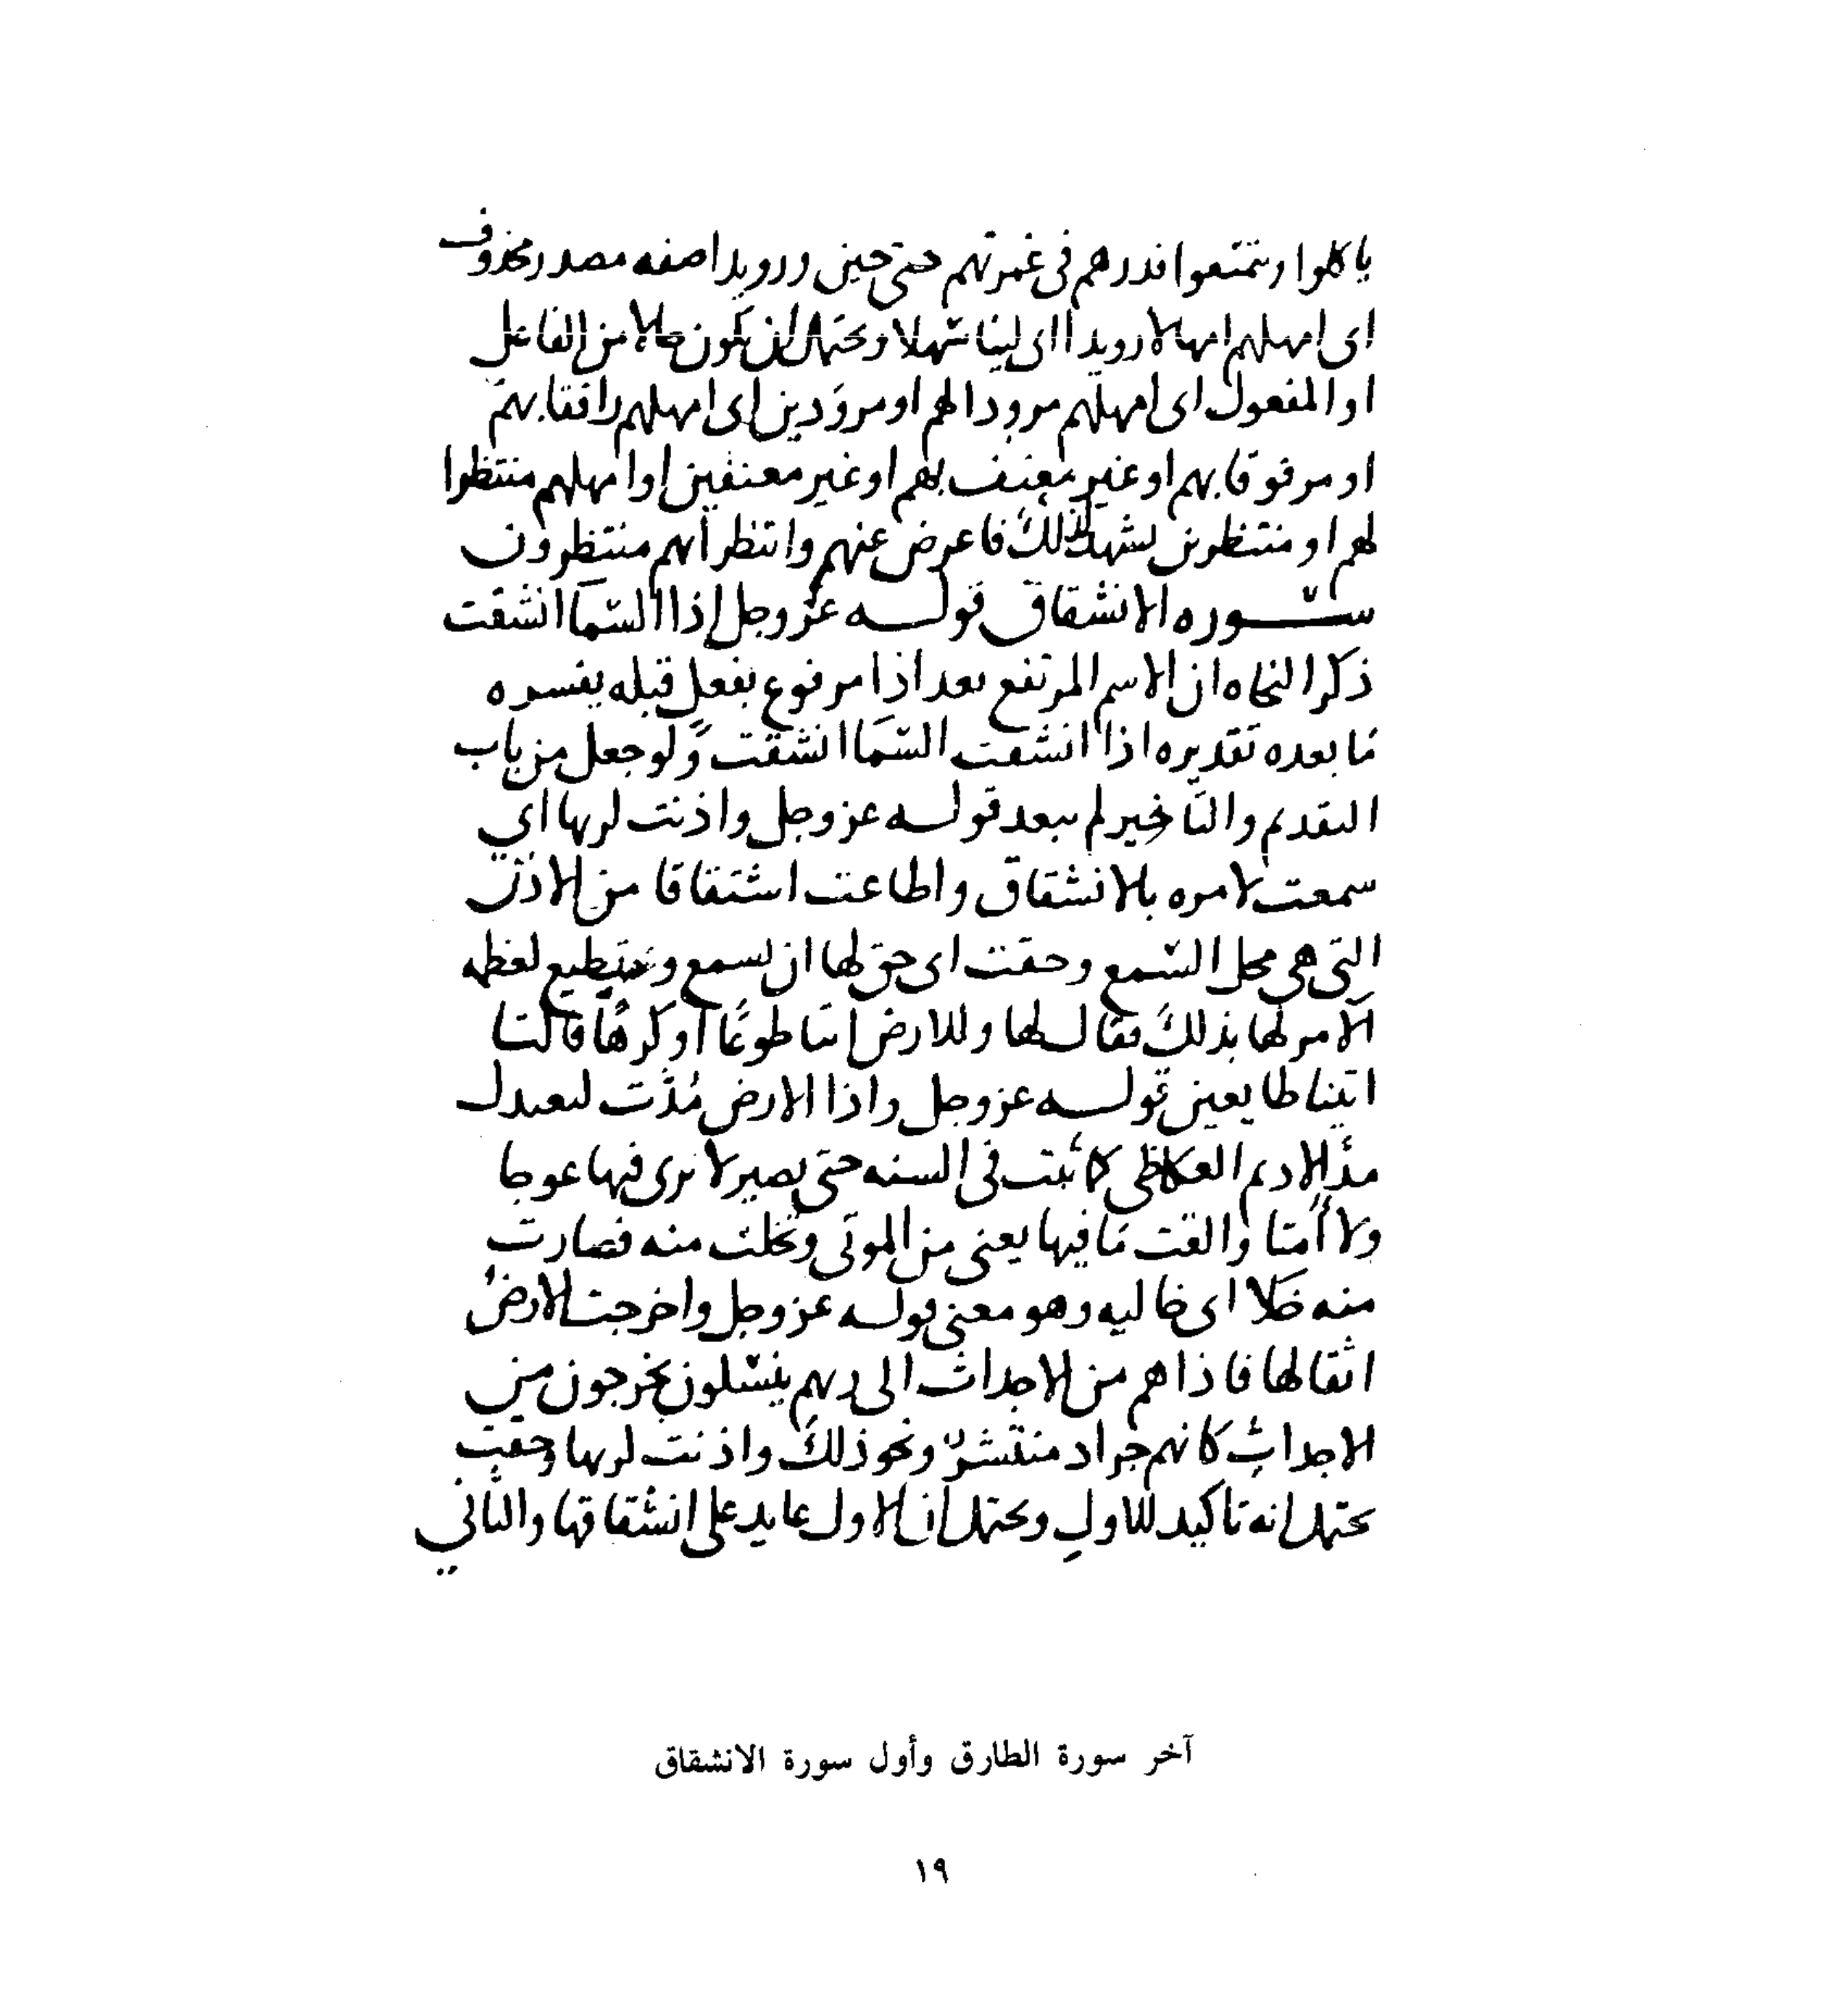 ياكلوا ويتمتعوا فذرهم في غمرتهم حتى حين ورويدا صفه مصدر محذوف
اى امهلهم امهالا رويدا اى لينا سهلا ويحتمل ان يكون حالا من الفاعل
او المفعول اى امهلهم مرودا لهم او مرودين اى امهلهم رافقا بهم
او مرفوقا بهم او غير معنف بهم او غير معنفين او امهلهم منتظرا
لهم او منتظرين يشهد لذلك فاعرض عنهم وانتظر انهم منتظرون
سوره الانشقاق قوله عز وجل اذا السما انشقت
ذكر النحاه ان الاسم المرتفع بعد اذا مرفوع بفعل قبله يفسره
ما بعده تقديره اذا انشقت السما انشقت ولو جعل من باب
التقديم والتاخير لم يبعد قوله عز وجل واذنت لربها اي
سمعت لامره بالانشقاق واطاعت اشتقاقا من الاذن
التي هي محل السمع وحقت اى حق لها ان تسمع وتطيع لعظمه
الامر لها بذلك فقال لها وللارض ائتيا طوعًا او كرهًا قالتا
اتينا طايعين قوله عز وجل واذا الارض مُدَّت لتعبدل
مدَّ الاديم العكاظي كما ثبت في السنه حتى يصير لا ترى فيها عوجا
ولا أمتا والقت ما فيها يعني من الموتى وتخلت منه فصارت
منه خلا اى خاليه وهو معنى قوله عز وجل واخرجت الارض
اثقالها فاذا هم من الاجداث الى ربهم ينسلون يخرجون من
الاجداث كانهم جراد منتشر ونحو ذلك واذنت لربها وحقت
يحتمل انه تاكيد للاول ويحتمل ان الاول عايد على انشقاقها والثاني
آخر سورة الطارق وأول سورة الانشقاق
١٩